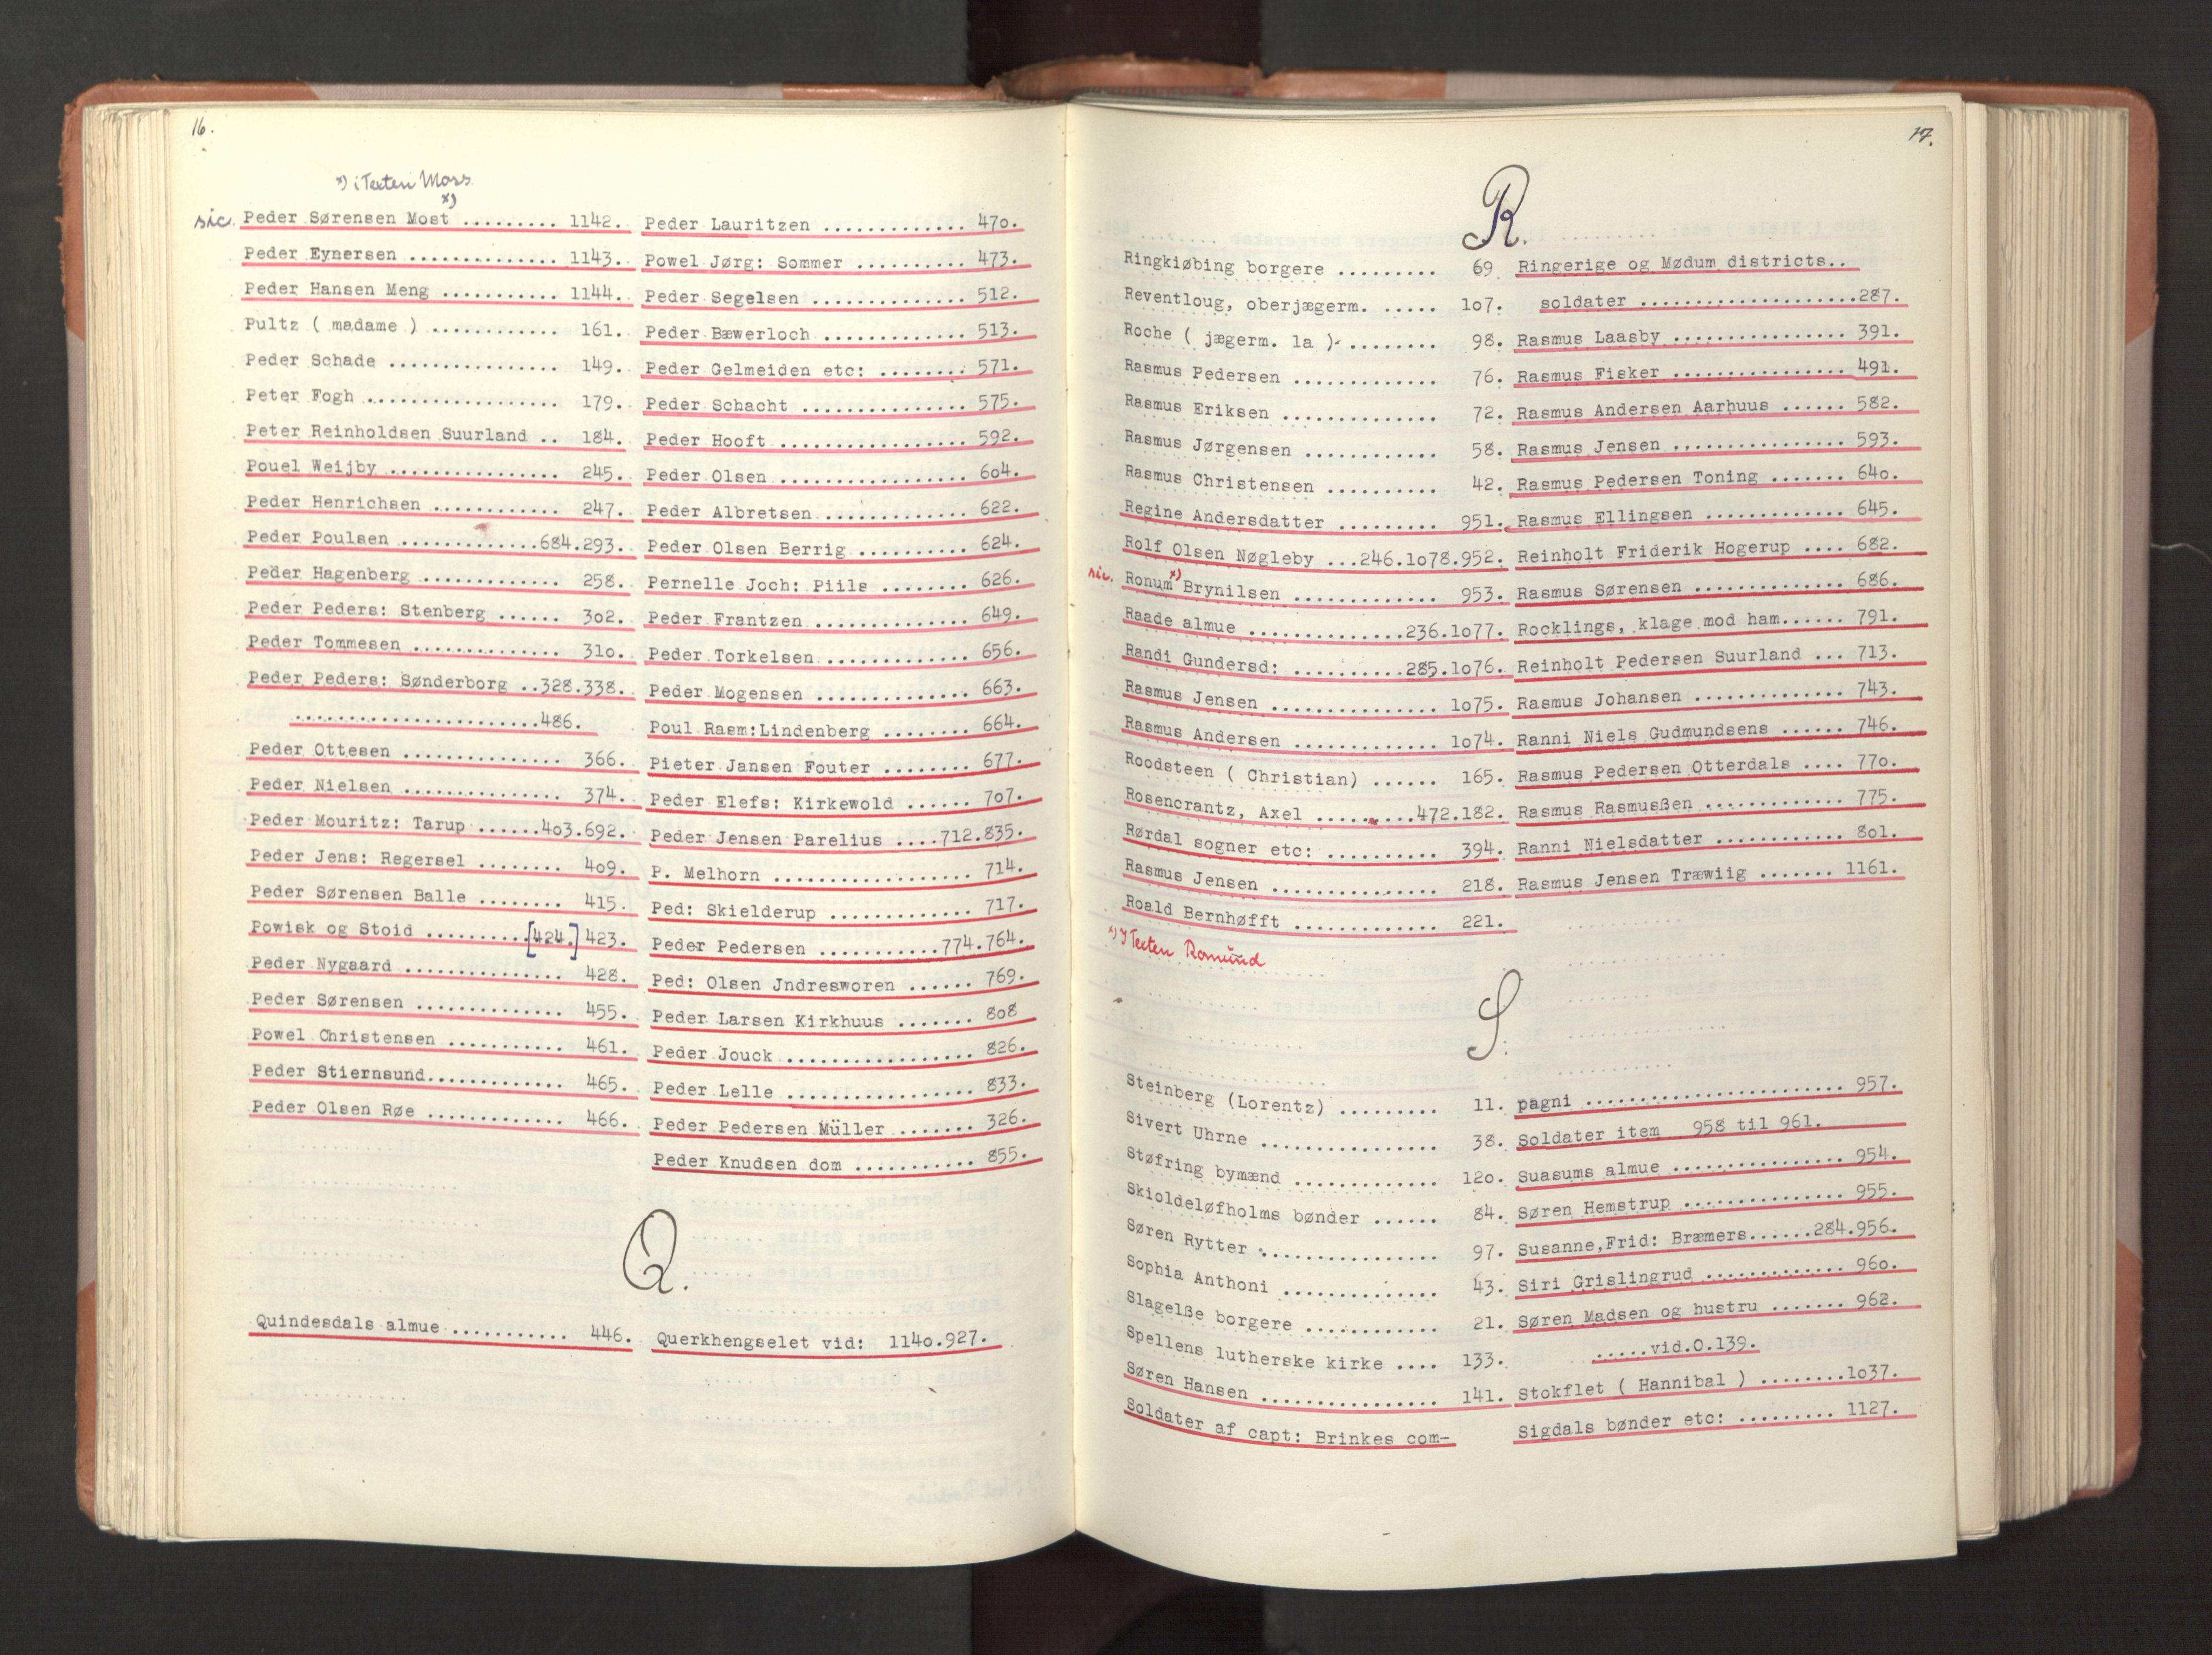 16.
x) i Texten Mors.
x)
sic. Peder Sørensen Most ......... 1142.
Peder Eynersen .............. 1143.
Peder Hansen Meng ........... 1144.
Pultz ( madame ) ............ 161.
Peder Schade ................ 149.
Peter Fogh .................. 179.
Peter Reinholdsen Suurland .. 184.
Pouel Weijby ................ 245.
Peder Henrichsen ............ 247.
Peder Poulsen .............684.293.
Peder Hagenberg ............. 258.
Peder Peders: Stenberg ...... 3o2.
Peder Tommesen .............. 31o.
Peder Peders: Sønderborg ..328.338.
.......................486.
Peder Ottesen ............... 366.
Peder Nielsen ............... 374.
Peder Mouritz: Tarup ......4o3.692.
Peder Jens: Regersel ........ 4o9.
Peder Sørensen Balle ........ 415.
Powisk og Stoid ..........[424.] 423.
Peder Nygaard ............... 428.
Peder Sørensen .............. 455.
Powel Christensen ........... 461.
Peder Stiernsund............. 465.
Peder Olsen Røe ............. 466.
Peder Lauritzen ............. 47o.
Powel Jørg: Sommer .......... 473.
Peder Segelsen .............. 512.
Peder Bæwerloch ............. 513.
Peder Gelmeiden etc: ........ 571.
Peder Schacht ............... 575.
Peder Hooft ................. 592.
Peder Olsen ................. 6o4.
Peder Albretsen ............. 622.
Peder Olsen Berrig .......... 624.
Pernelle Joch: Piils ........ 626.
Peder Frantzen .............. 649.
Peder Torkelsen ............. 656.
Peder Mogensen .............. 663.
Poul Rasm:Lindenberg ........ 664.
Pieter Jansen Fouter ........ 677.
Peder Elefs: Kirkewold ...... 7o7.
Peder Jensen Parelius ....712.835.
P. Melhorn .................. 714.
Ped: Skielderup ............. 717.
Peder Pedersen ...........774.764.
Ped: Olsen Jndresworen ...... 769.
Peder Larsen Kirkhuus ....... 8o8
Peder Jouck ................. 826.
Peder Lelle ................. 833.
Peder Pedersen Müller ....... 326.
Peder Knudsen dom ........... 855.
Q.
Quindesdals almue ........... 446.
Querkhengselet vid: 114o.927.
17.
R.
Ringkiøbing borgere ......... 69.
Reventloug, oberjægerm. ..... 1o7.
Roche ( jægerm. la ) ........ 98.
Rasmus Pedersen ............. 76.
Rasmus Eriksen .............. 72.
Rasmus Jørgensen ............ 58.
Rasmus Christensen .......... 42.
Regine Andersdatter ......... 951.
Rolf Olsen Nøgleby ...246.1o78.952.
sic. Ronum x) Brynilsen ............. 953.
Raade almue ..............236.1o77.
Randi Gundersd: ..........285.1o76.
Rasmus Jensen ............... 1o75.
Rasmus Andersen ............. 1o74.
Roodsteen ( Christian) ...... 165.
Rosencrantz, Axel .........472.182.
Rørdal sogner etc: .......... 394.
Rasmus Jensen ............... 218.
Roald Bernhøfft ............. 221.
x) I Texten Romund
Ringerige og Mødum districts..
soldater ....................287.
Rasmus Laasby ................ 391.
Rasmus Fisker ................ 491.
Rasmus Andersen Aarhuus ...... 582.
Rasmus Jensen ................ 593.
Rasmus Pedersen Toning ....... 64o.
Rasmus Ellingsen ............. 645.
Reinholt Friderik Hogerup .... 682.
Rasmus Sørensen .............. 686.
Rocklings, klage mod ham...... 791.
Reinholt Pedersen Suurland ... 713.
Rasmus Johansen .............. 743.
Ranni Niels Gudmundsens ...... 746.
Rasmus Pedersen Otterdals .... 77o.
Rasmus Rasmusßen ............. 775.
Ranni Nielsdatter ............ 8o1.
Rasmus Jensen Træwiig ....... 1161.
S.
Steinberg (Lorentz) ......... 11.
Sivert Uhrne ................ 38.
Støfring bymænd ............. 12o.
Skioldeløfholms bønder ...... 84.
Søren Rytter ................ 97.
Sophia Anthoni .............. 43.
Slagelße borgere ............ 21.
Spellens lutherske kirke .... 133.
Søren Hansen ................ 141.
Soldater af capt: Brinkes com-
pagni ........................ 957.
Soldater item 958 til 961.
Suasums almue ................ 954.
Søren Hemstrup ............... 955.
Susanne,Frid: Bræmers......284.956.
Siri Grislingrud ............. 96o.
Søren Madsen og hustru ....... 962.
.....vid.O.139.
Stokflet ( Hannibal ) ........1o37.
Sigdals bønder etc: ......... 1127.